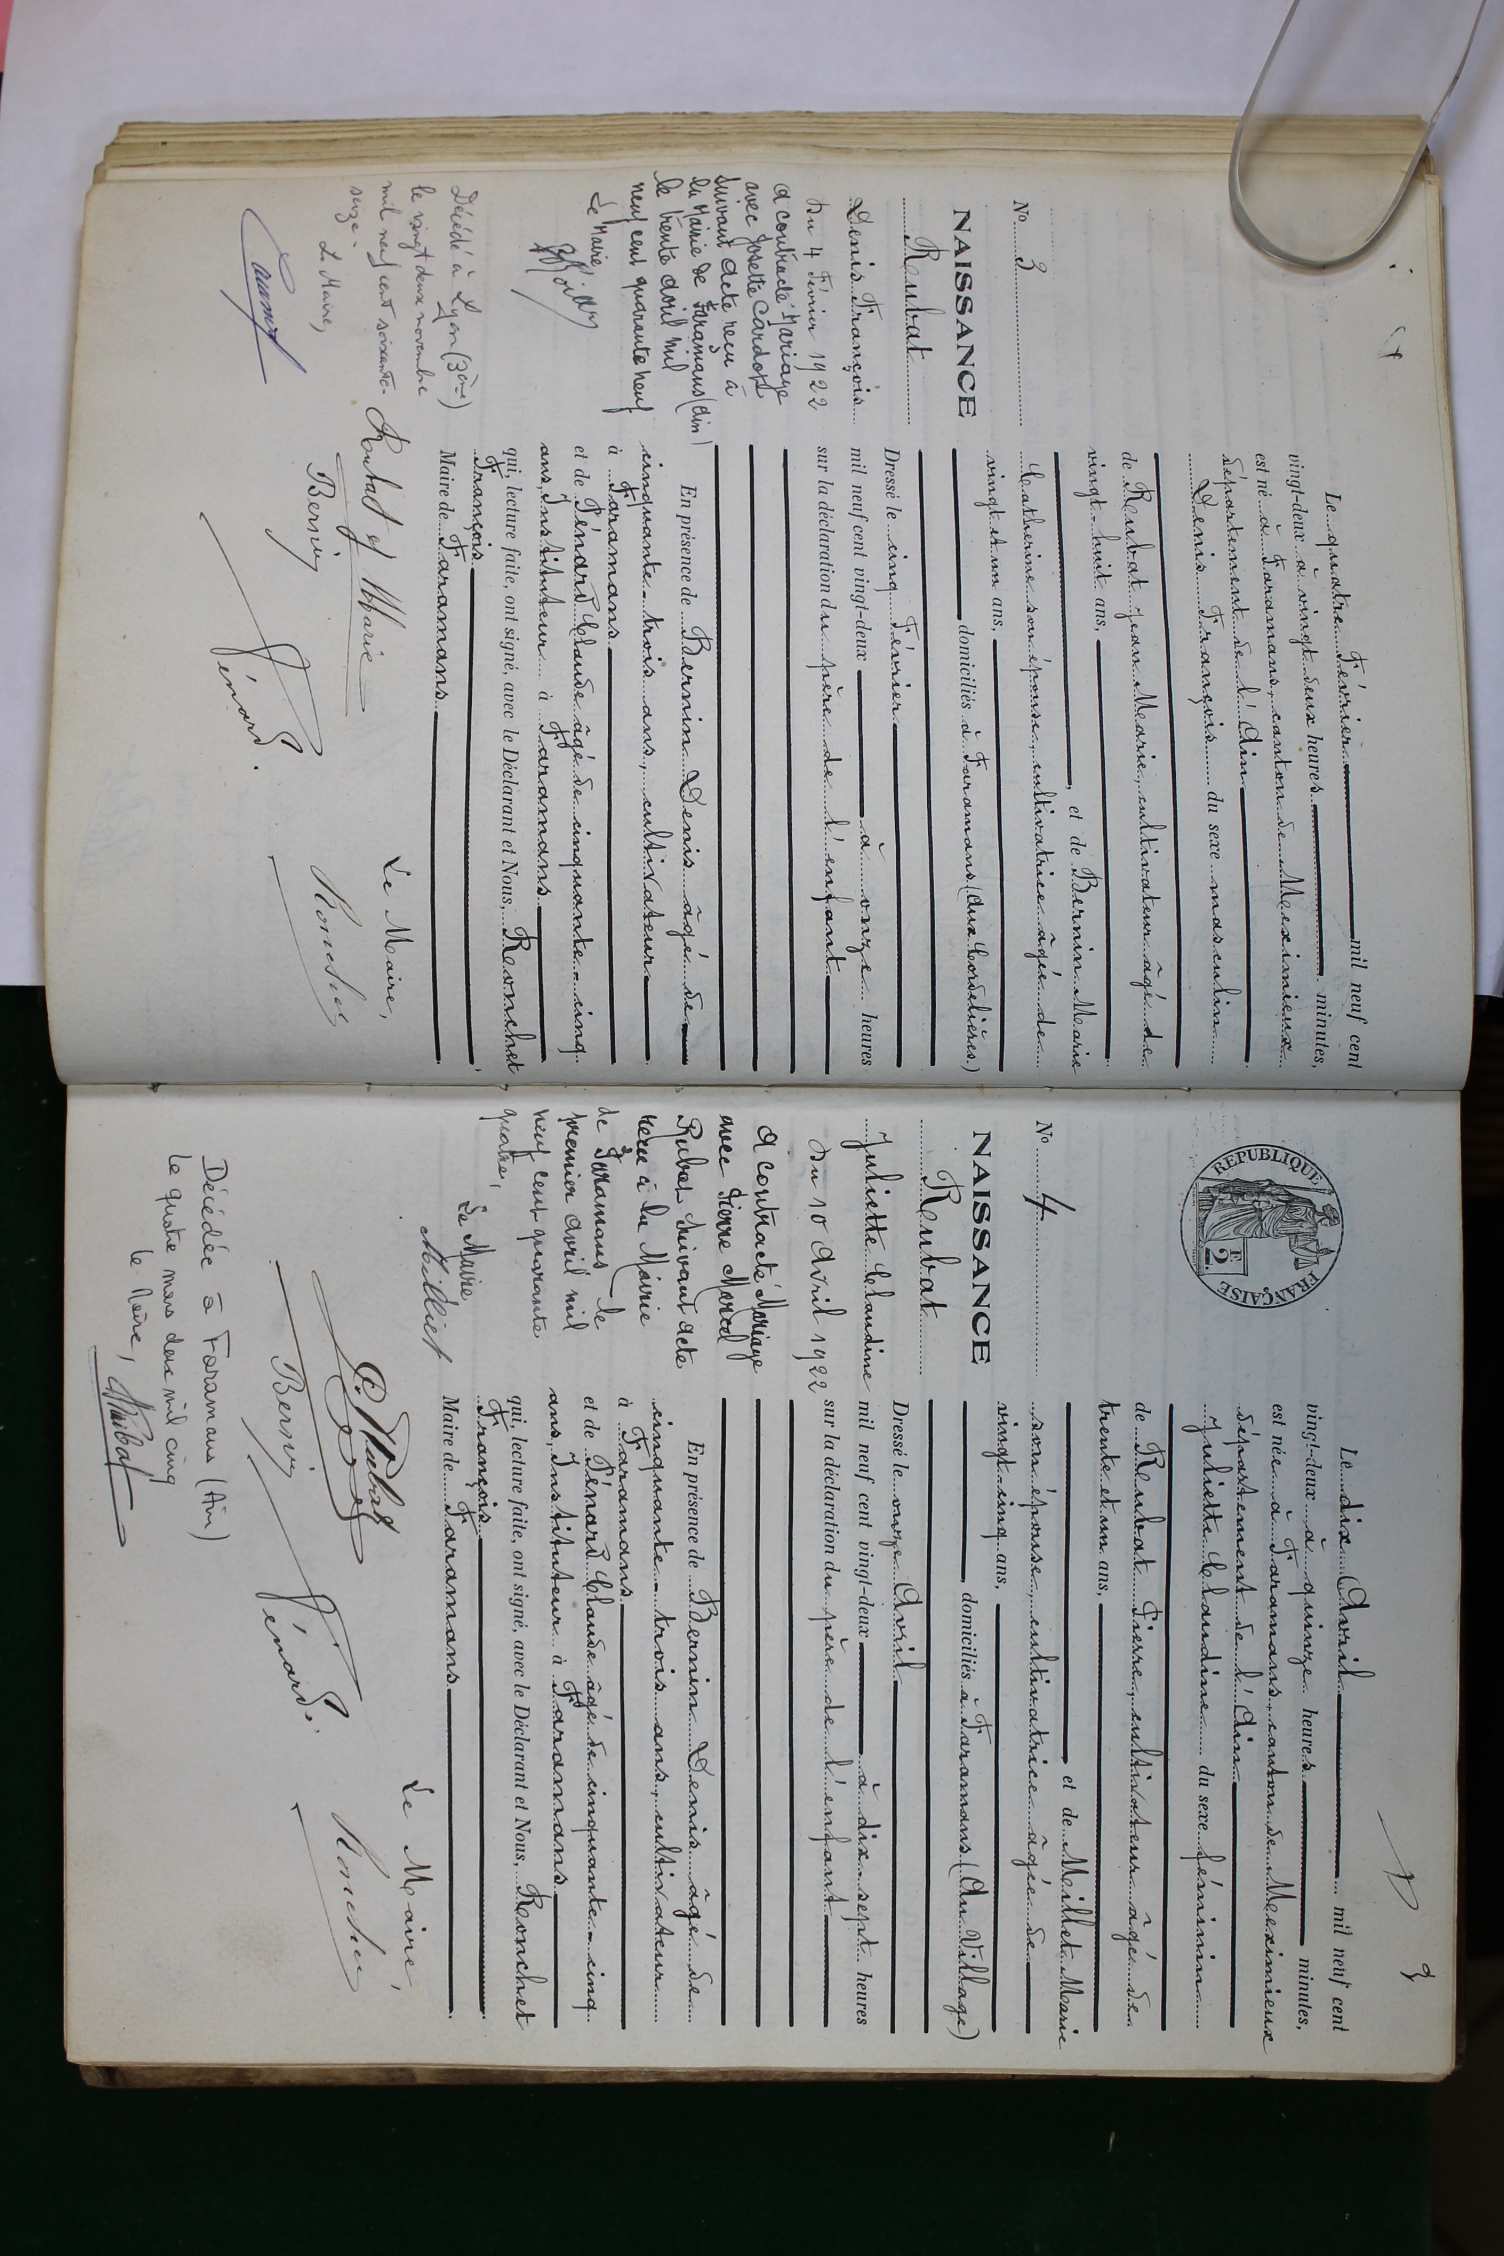 No 3
NAISSANCE
Reubat
Denis François
Du 4 Février 1922
a contracté Mariage
avec Josette Cardot
suivant acte reçu à
la Mairie de Faramans (Ain)
le trente avril mil
neuf cent quarante neuf
Le Maire,
Décédé à Lyon (3ème)
le vingt deux novembre
mil neuf cent soixante-
seize.
Le Maire,
Le quatre Février mil neuf cent
vingt-deux à vingt deux heures minutes,
est né à Faramans, canton de Meximieux
département de l'Ain
Denis François du sexe masculin
de Reubat Jean Marie, cultivateur âgé de
vingt-huit ans,
, et de Bernin Marie
Catherine son épouse, cultivatrice âgée de
vingt et un ans,
domiciliés à Faramans (Aux Cordelières)
Dressé le cinq Février
mil neuf cent vingt-deux à onze heures
sur la déclaration du père de l'enfant
En présence de Bernin Denis âgé de
cinquante-trois ans, cultivateur
à Faramans
et de Pénard Claude âgé de cinquante-cinq
ans, Instituteur à Faramans
qui, lecture faite, ont signé, avec le Déclarant et Nous, Ronchet
François
Maire de Faramans
Le Maire,
Rubat J Marie
Bernin
Pénard.
Ronchet
RÉPUBLIQUE FRANÇAISE
2F
No 4
NAISSANCE
Reubat
Juliette Claudine
Du 10 Avril 1922
a contracté Mariage
avec Pierre Marcel
Rubat suivant acte
reçu à la Mairie
de Faramans le
premier avril mil
neuf cent quarante
quatre,
Le Maire
Milliet
Décédée à Faramans (Ain)
le quatre mars deux mil cinq
le Maire,
Le dix Avril mil neuf cent
vingt-deux à quinze heures minutes,
est née à Faramans, canton de Meximieux
département de l'Ain
Juliette Claudine du sexe féminin
de Reubat Pierre, cultivateur âgé de
trente et un ans,
, et de Millet Marie
son épouse, cultivatrice âgée de
vingt-cinq ans,
domiciliés à Faramans (Au Village)
Dressé le onze Avril
mil neuf cent vingt-deux à dix-sept heures
sur la déclaration du père de l'enfant
En présence de Bernin Denis âgé de
cinquante-trois ans, cultivateur
à Faramans
et de Pénard Claude âgé de cinquante-cinq
ans, Instituteur à Faramans
qui, lecture faite, ont signé, avec le Déclarant et Nous, Ronchet
François
Maire de Faramans
Le Maire,
P. Rubat
Bernin
Pénard.
Ronchet